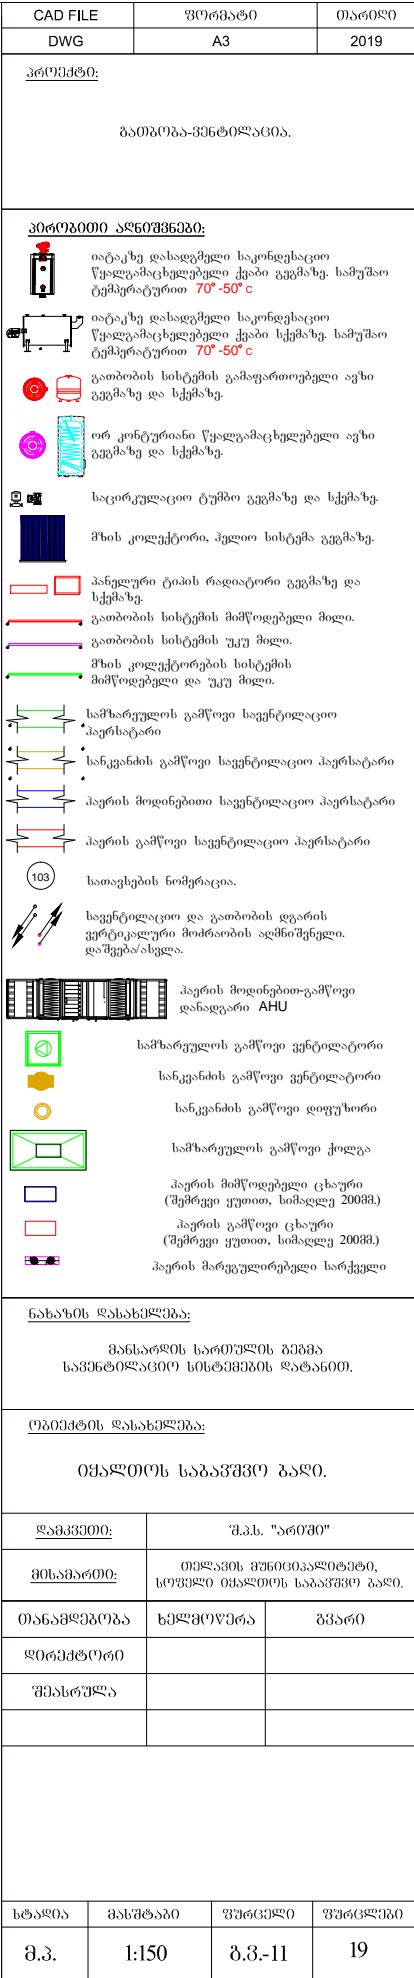 CAD FILE ფორმატი თარიღი
DWG A3 2019
პროექტი:
გათბობა-ვენტილაცია.
პირობითი აღნიშვნები:
იატაკზე დასადგმელი საკონდესაციო
წყალგამაცხელებელი ქვაბი გეგმაზე. სამუშაო
ტემპერატურით 70°-50°c
იატაკზე დასადგმელი საკონდესაციო
წყალგამაცხელებელი ქვაბი სქემაზე. სამუშაო
ტემპერატურით 70°-50°c
გათბობის სისტემის გამაფართოებელი ავზი
გეგმაზე და სქემაზე.
ორ კონტურიანი წყალგამაცხელებელი ავზი
გეგმაზე და სქემაზე.
საცირკულაციო ტუმბო გეგმაზე და სქემაზე.
მზის კოლექტორი, ჰელიო სისტემა გეგმაზე.
პანელური ტიპის რადიატორი გეგმაზე და
სქემაზე.
გათბობის სისტემის მიმწოდებელი მილი.
გათბობის სისტემის უკუ მილი.
მზის კოლექტორების სისტემის
მიმწოდებელი და უკუ მილი.
სამზარეულოს გამწოვი სავენტილაციო
ჰაერსატარი
სანკვანძის გამწოვი სავენტილაციო ჰაერსატარი
ჰაერის მოდინებითი სავენტილაციო ჰაერსატარი
ჰაერის გამწოვი სავენტილაციო ჰაერსატარი
103 სათავსების ნომერაცია.
სავენტილაციო და გათბობის დგარის
ვერტიკალური მოძრაობის აღმნიშვნელი.
დაშვება/ასვლა.
ჰაერის მოდინებით-გამწოვი
დანადგარი AHU
სამზარეულოს გამწოვი ვენტილატორი
სანკვანძის გამწოვი ვენტილატორი
სანკვანძის გამწოვი დიფუზორი
სამზარეულოს გამწოვი ქოლგა
ჰაერის მიმწოდებელი ცხაური
(შემრევი ყუთით, სიმაღლე 200მმ.)
ჰაერის გამწოვი ცხაური
(შემრევი ყუთით, სიმაღლე 200მმ.)
ჰაერის მარეგულირებელი სარქველი
ნახაზის დასახელება:
მანსარდის სართულის გეგმა
სავენტილაციო სისტემების დატანით.
ობიექტის დასახელება:
იყალთოს საბავშვო ბაღი.
დამკვეთი: შ.პ.ს. "არიში"
მისამართი: თელავის მუნიციპალიტეტი,
სოფელი იყალთოს საბავშვო ბაღი.
თანამდებობა ხელმოწერა გვარი
დირექტორი
შეასრულა
სტადია მასშტაბი ფურცელი ფურცლები
მ.პ. 1:150 გ.ვ.-11 19